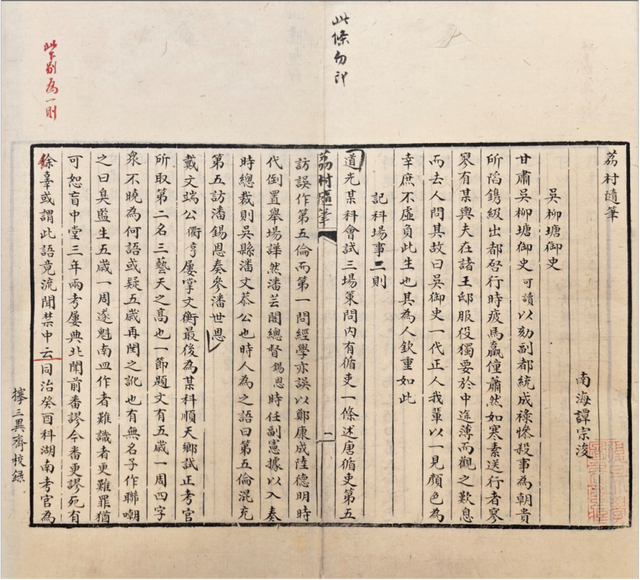 此條勿印
此下別為一則
荔村隨筆
南海譚宗浚
吳柳塘御史
甘肅吳柳塘御史可讀以劾副都統成祿慘殺事為朝貴
所陷鐫級出都啓行時疲馬羸僮蕭然如寒素送行者寥
寥有某輿夫在諸王邸服役獨要於中途薄而觀之歎息
而去人問其故曰吳御史一代正人我輩以一見顏色為
幸庶不虛負此生也其為人欽重如此
記科場事二則
道光某科會試三場策問內有循吏一條述唐循吏第五
荔村隨筆
二
訪誤作第五倫而第一問經學亦誤以鄭康成陸德明時
代倒置舉場譁然潘芸閣總督錫恩時任副憲據以入奏
時總裁則吳縣潘文恭公也時人為之語曰第五倫混充
第五訪潘錫恩奏參潘世恩
戴文端公衢亨屢掌文衡最後為某科順天鄉試正考官
所取第二名三藝天之高也一節題文有五歲一周四字
眾不曉為何語或疑五歲再閏之訛也有無名子作聯嘲
之曰臭監生五歲一周遂魁南皿作者難識者更難罪猶
可恕盲中堂三年兩考屢典北闈前番謬今番更謬死有
餘辜或謂此語竟流聞禁中云同治癸酉科湖南考官為
三異齋校錄